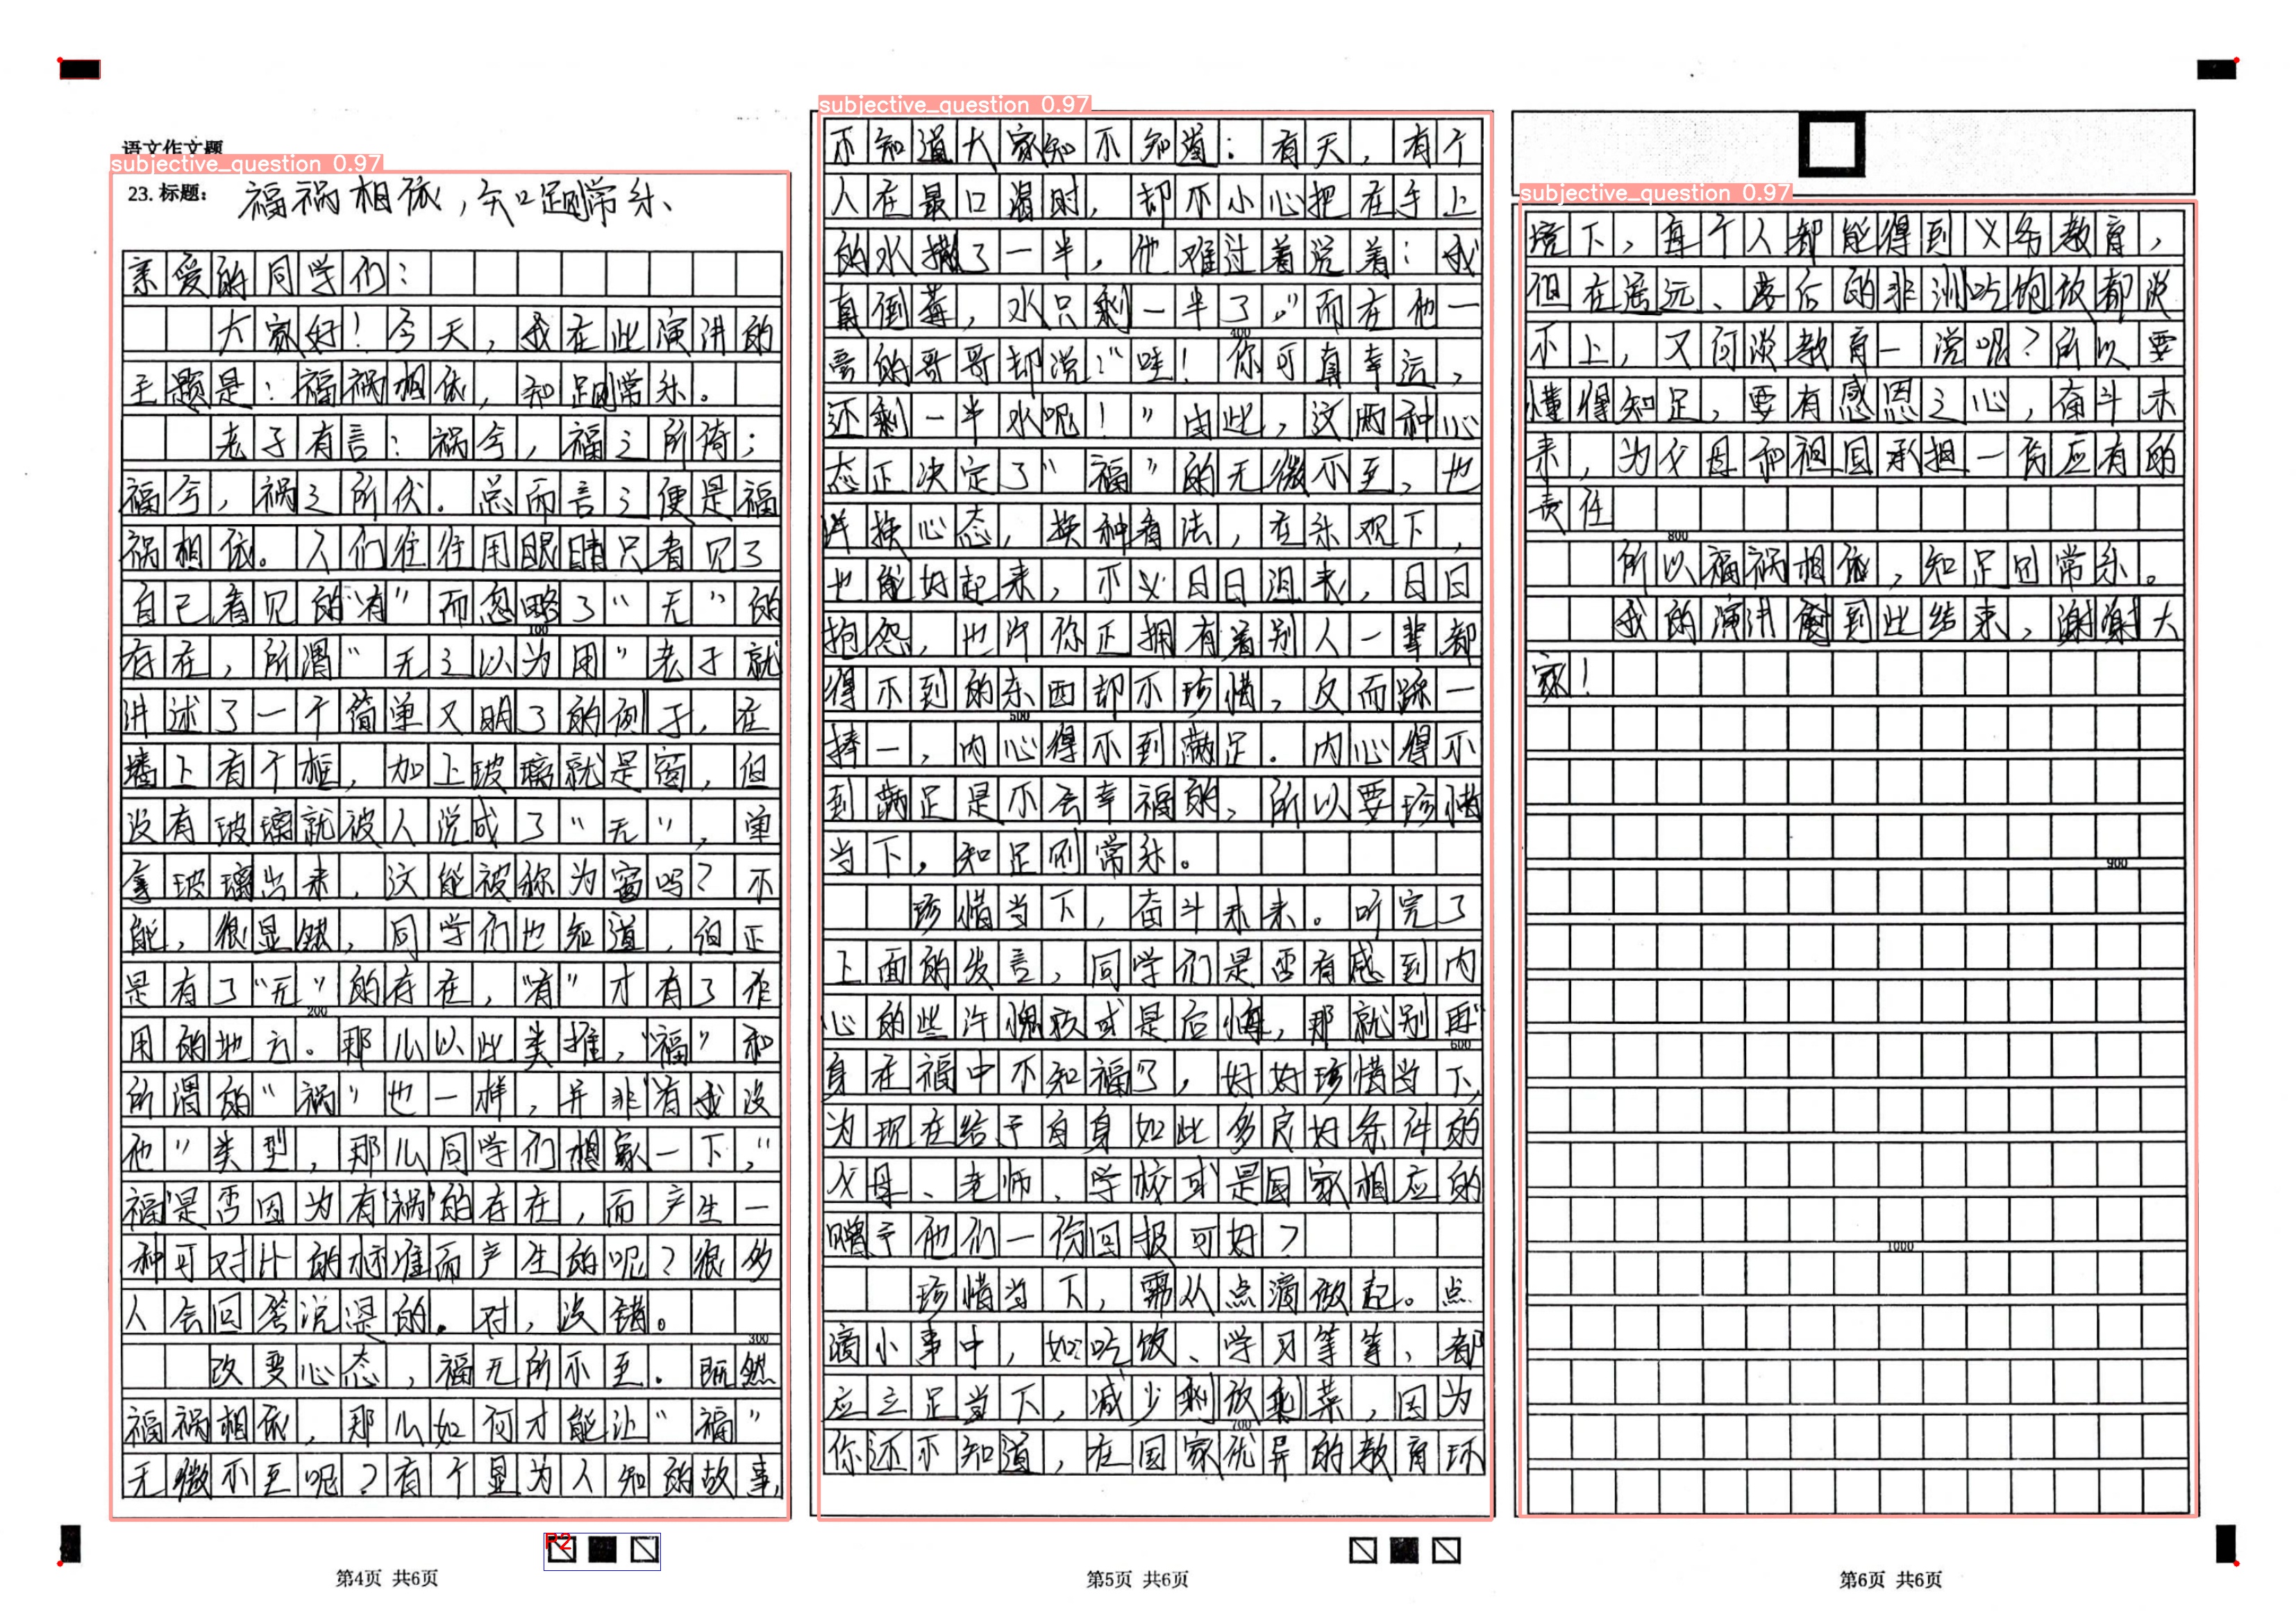 语文作文题
subjective_question 0.97
23. 标题： 福祸相依，知足则常乐
亲爱的同学们：
大家好！今天，我在此演讲的
主题是：福祸相依，知足则常乐。
老子有言：祸兮，福之所倚；
福兮，祸之所伏。总而言之便是福
祸相依。人们往往用眼睛只看见了
自己看见的“有”而忽略了“无”的
100
存在，所谓“无之以为用”老子就
讲述了一个简单又明了的例子，在
墙上有个框，加上玻璃就是窗，但
没有玻璃就被人说成了“无”，单
拿玻璃出来，这能被称为窗吗？不
能，很显然，同学们也知道，但正
是有了“无”的存在，“有”才有了作
200
用的地方。那么以此类推，“福”和
所谓的“祸”也一样，并非“有我没
他”类型，那么同学们想象一下，“
福”是否因为有“祸”的存在，而产生一
种可对比的标准而产生的呢？很多
人会回答说是的。对，没错。
300
改变心态，福无所不至。既然
福祸相依，那么如何才能让“福”
无微不至呢？有个显为人知的故事，
第4页 共6页
subjective_question 0.97
不知道大家知不知道：有天，有个
人在最口渴时，却不小心把在手上
的水撒了一半，他难过着说着：我
真倒莓，水只剩一半了。”而在他一
400
旁的哥哥却说：“哇！你可真幸运，
还剩一半水呢！”由此，这两种心
态正决定了“福”的无微不至，也
许换心态，换种看法，在乐观下，
也能好起来，不必日日沮丧，日日
抱怨，也许你正拥有着别人一辈都
得不到的东西却不珍惜，反而踩一
500
捧一，内心得不到满足。内心得不
到满足是不会幸福的，所以要珍惜
当下，知足则常乐。
珍惜当下，奋斗未来。听完了
上面的发言，同学们是否有感到内
心的些许愧疚或是后悔，那就别再“
600
身在福中不知福”了，好好珍惜当下，
为现在给予自身如此多良好条件的
父母、老师、学校或是国家相应的
赠予他们一份回报可好？
珍惜当下，需从点滴做起。点
滴小事中，如吃饭、学习等等，都
应立足当下，减少剩饭剩菜，因为
700
你还不知道，在国家优异的教育环
第5页 共6页
subjective_question 0.97
境下，每个人都能得到义务教育，
但在遥远、落后的非洲吃饱饭都谈
不上，又何谈教育一说呢？所以要
懂得知足，要有感恩之心，奋斗未
来，为父母和祖国承担一份应有的
责任
800
所以福祸相依，知足则常乐。
我的演讲到此结束，谢谢大
家！
900
1000
第6页 共6页